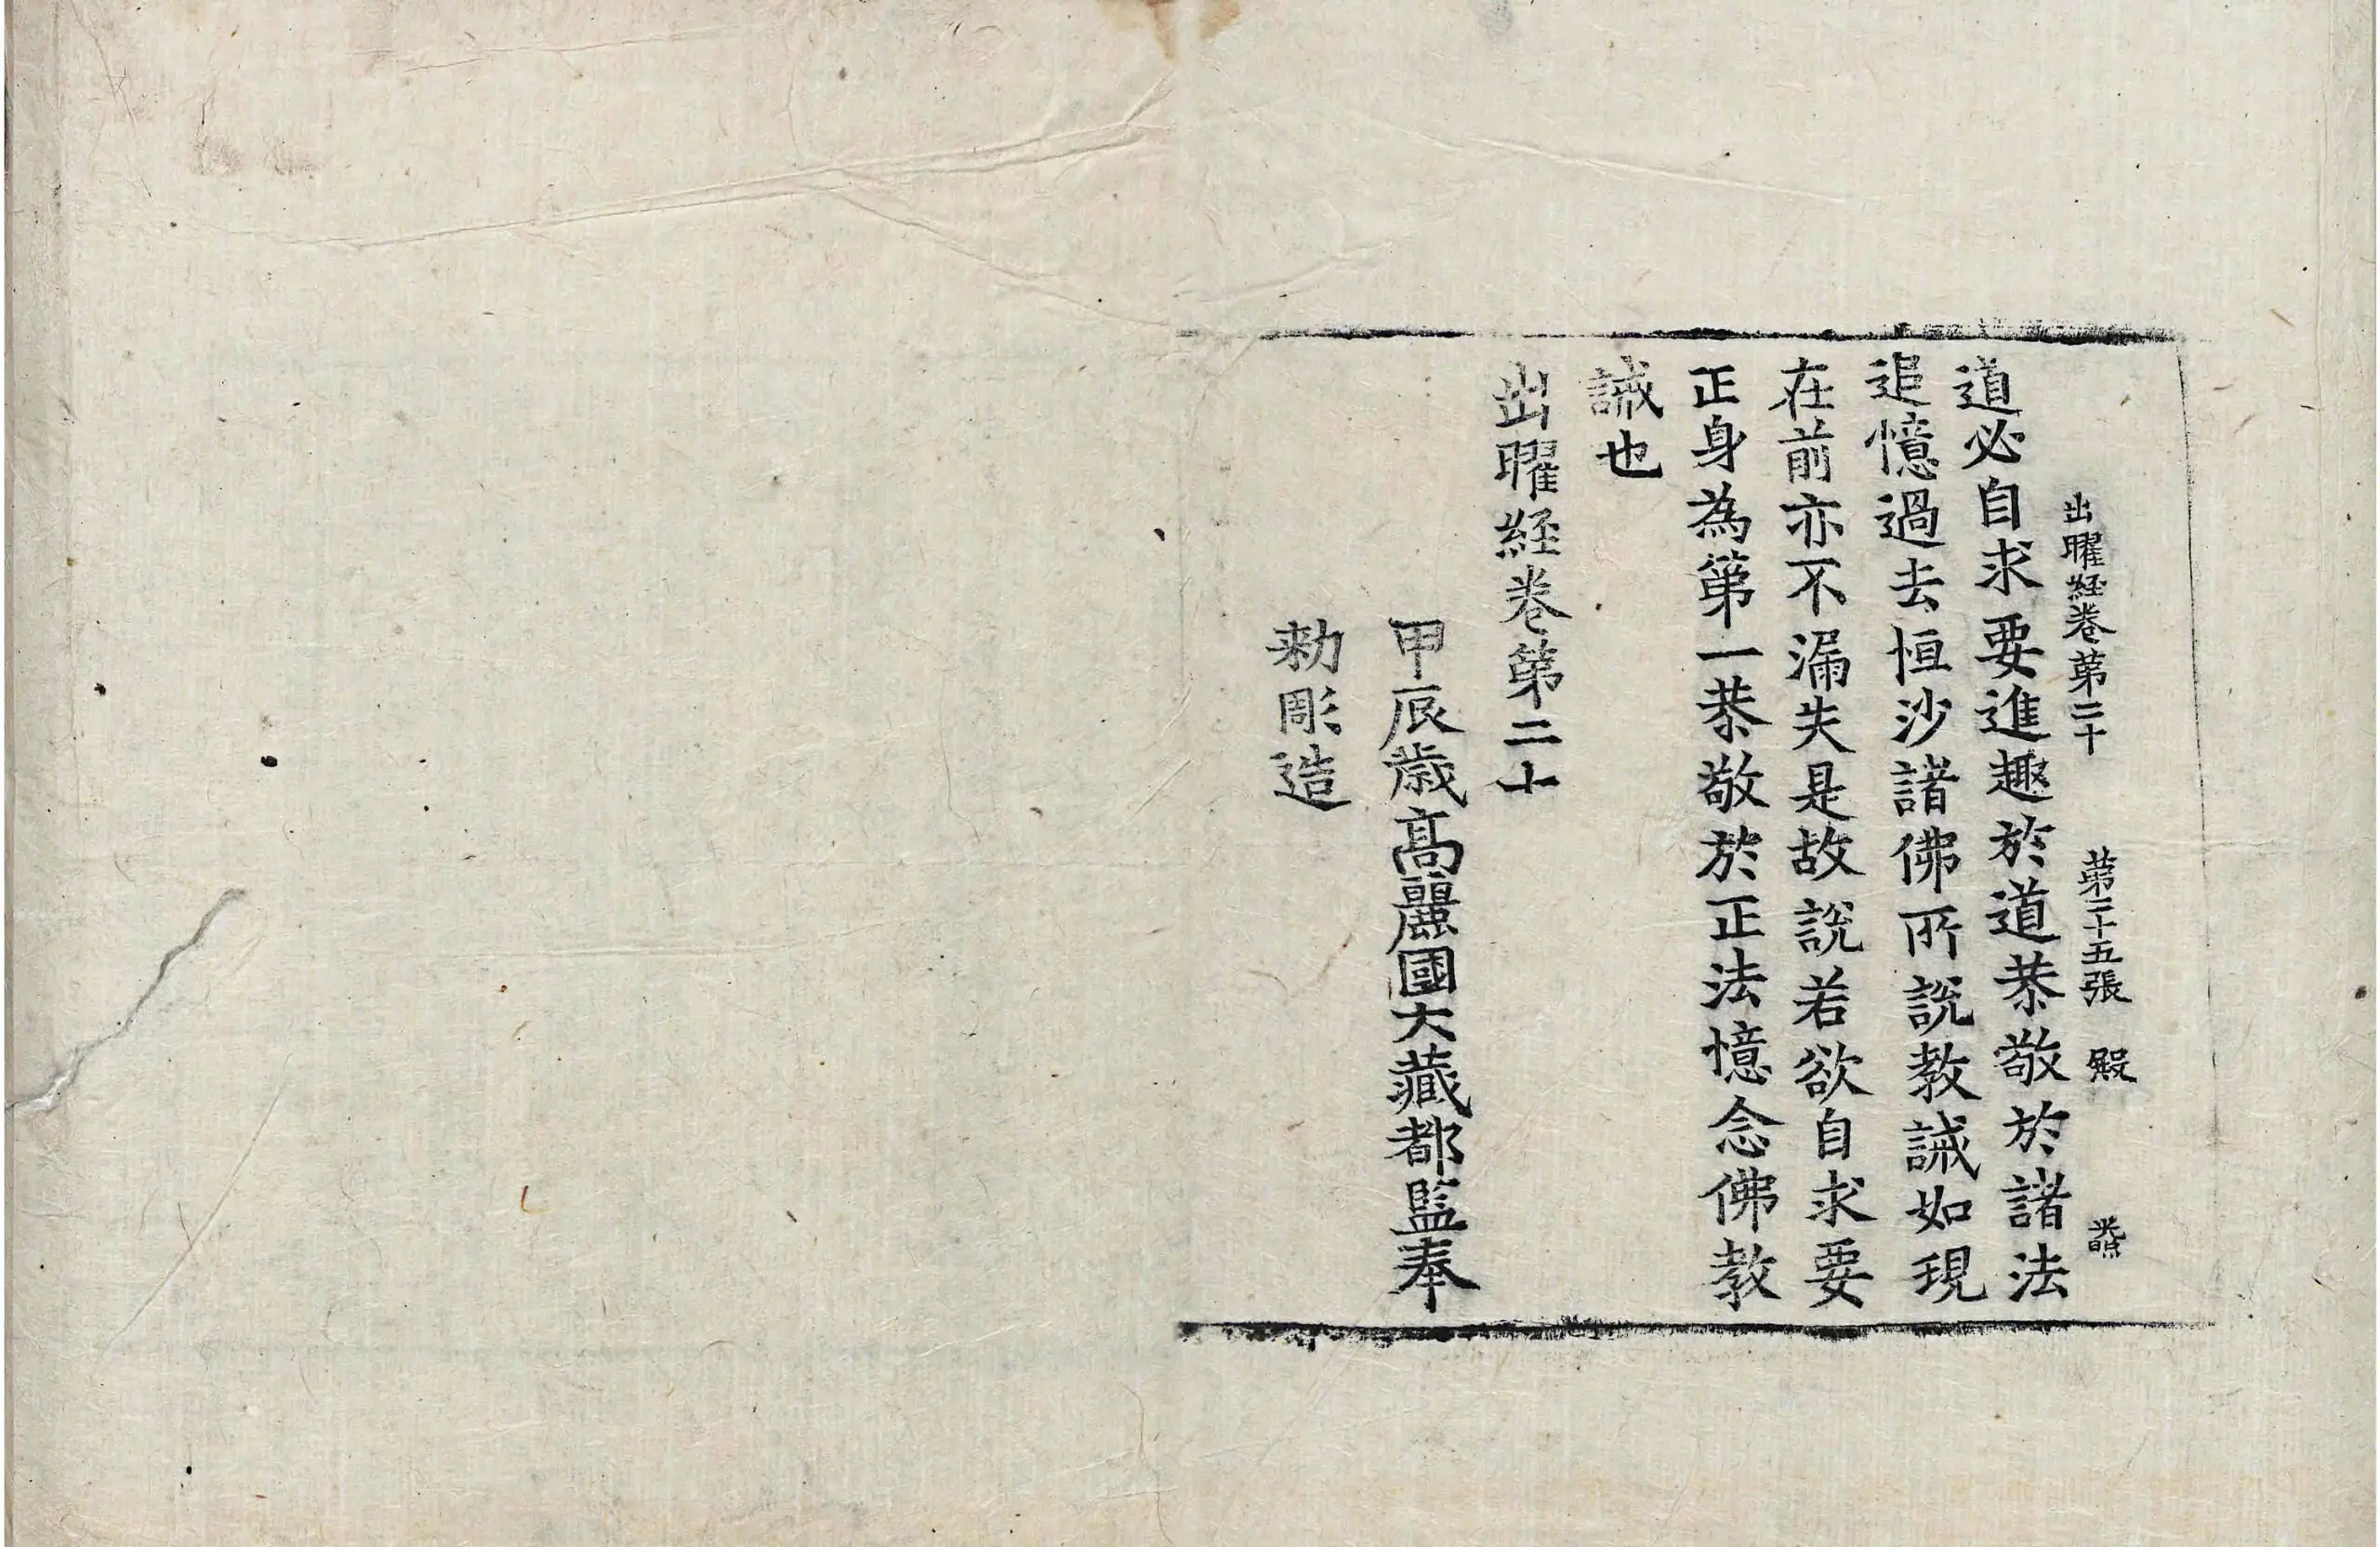 出曜経卷苐二十 苐二十五張 殿
道必自求要進趣於道恭敬於諸法
追憶過去恒沙諸佛所說教誡如現
在前亦不漏失是故說若欲自求要
正身為第一恭敬於正法憶念佛教
誡也
出曜経卷第二十
甲辰歳髙麗國大藏都監奉
勑彫造